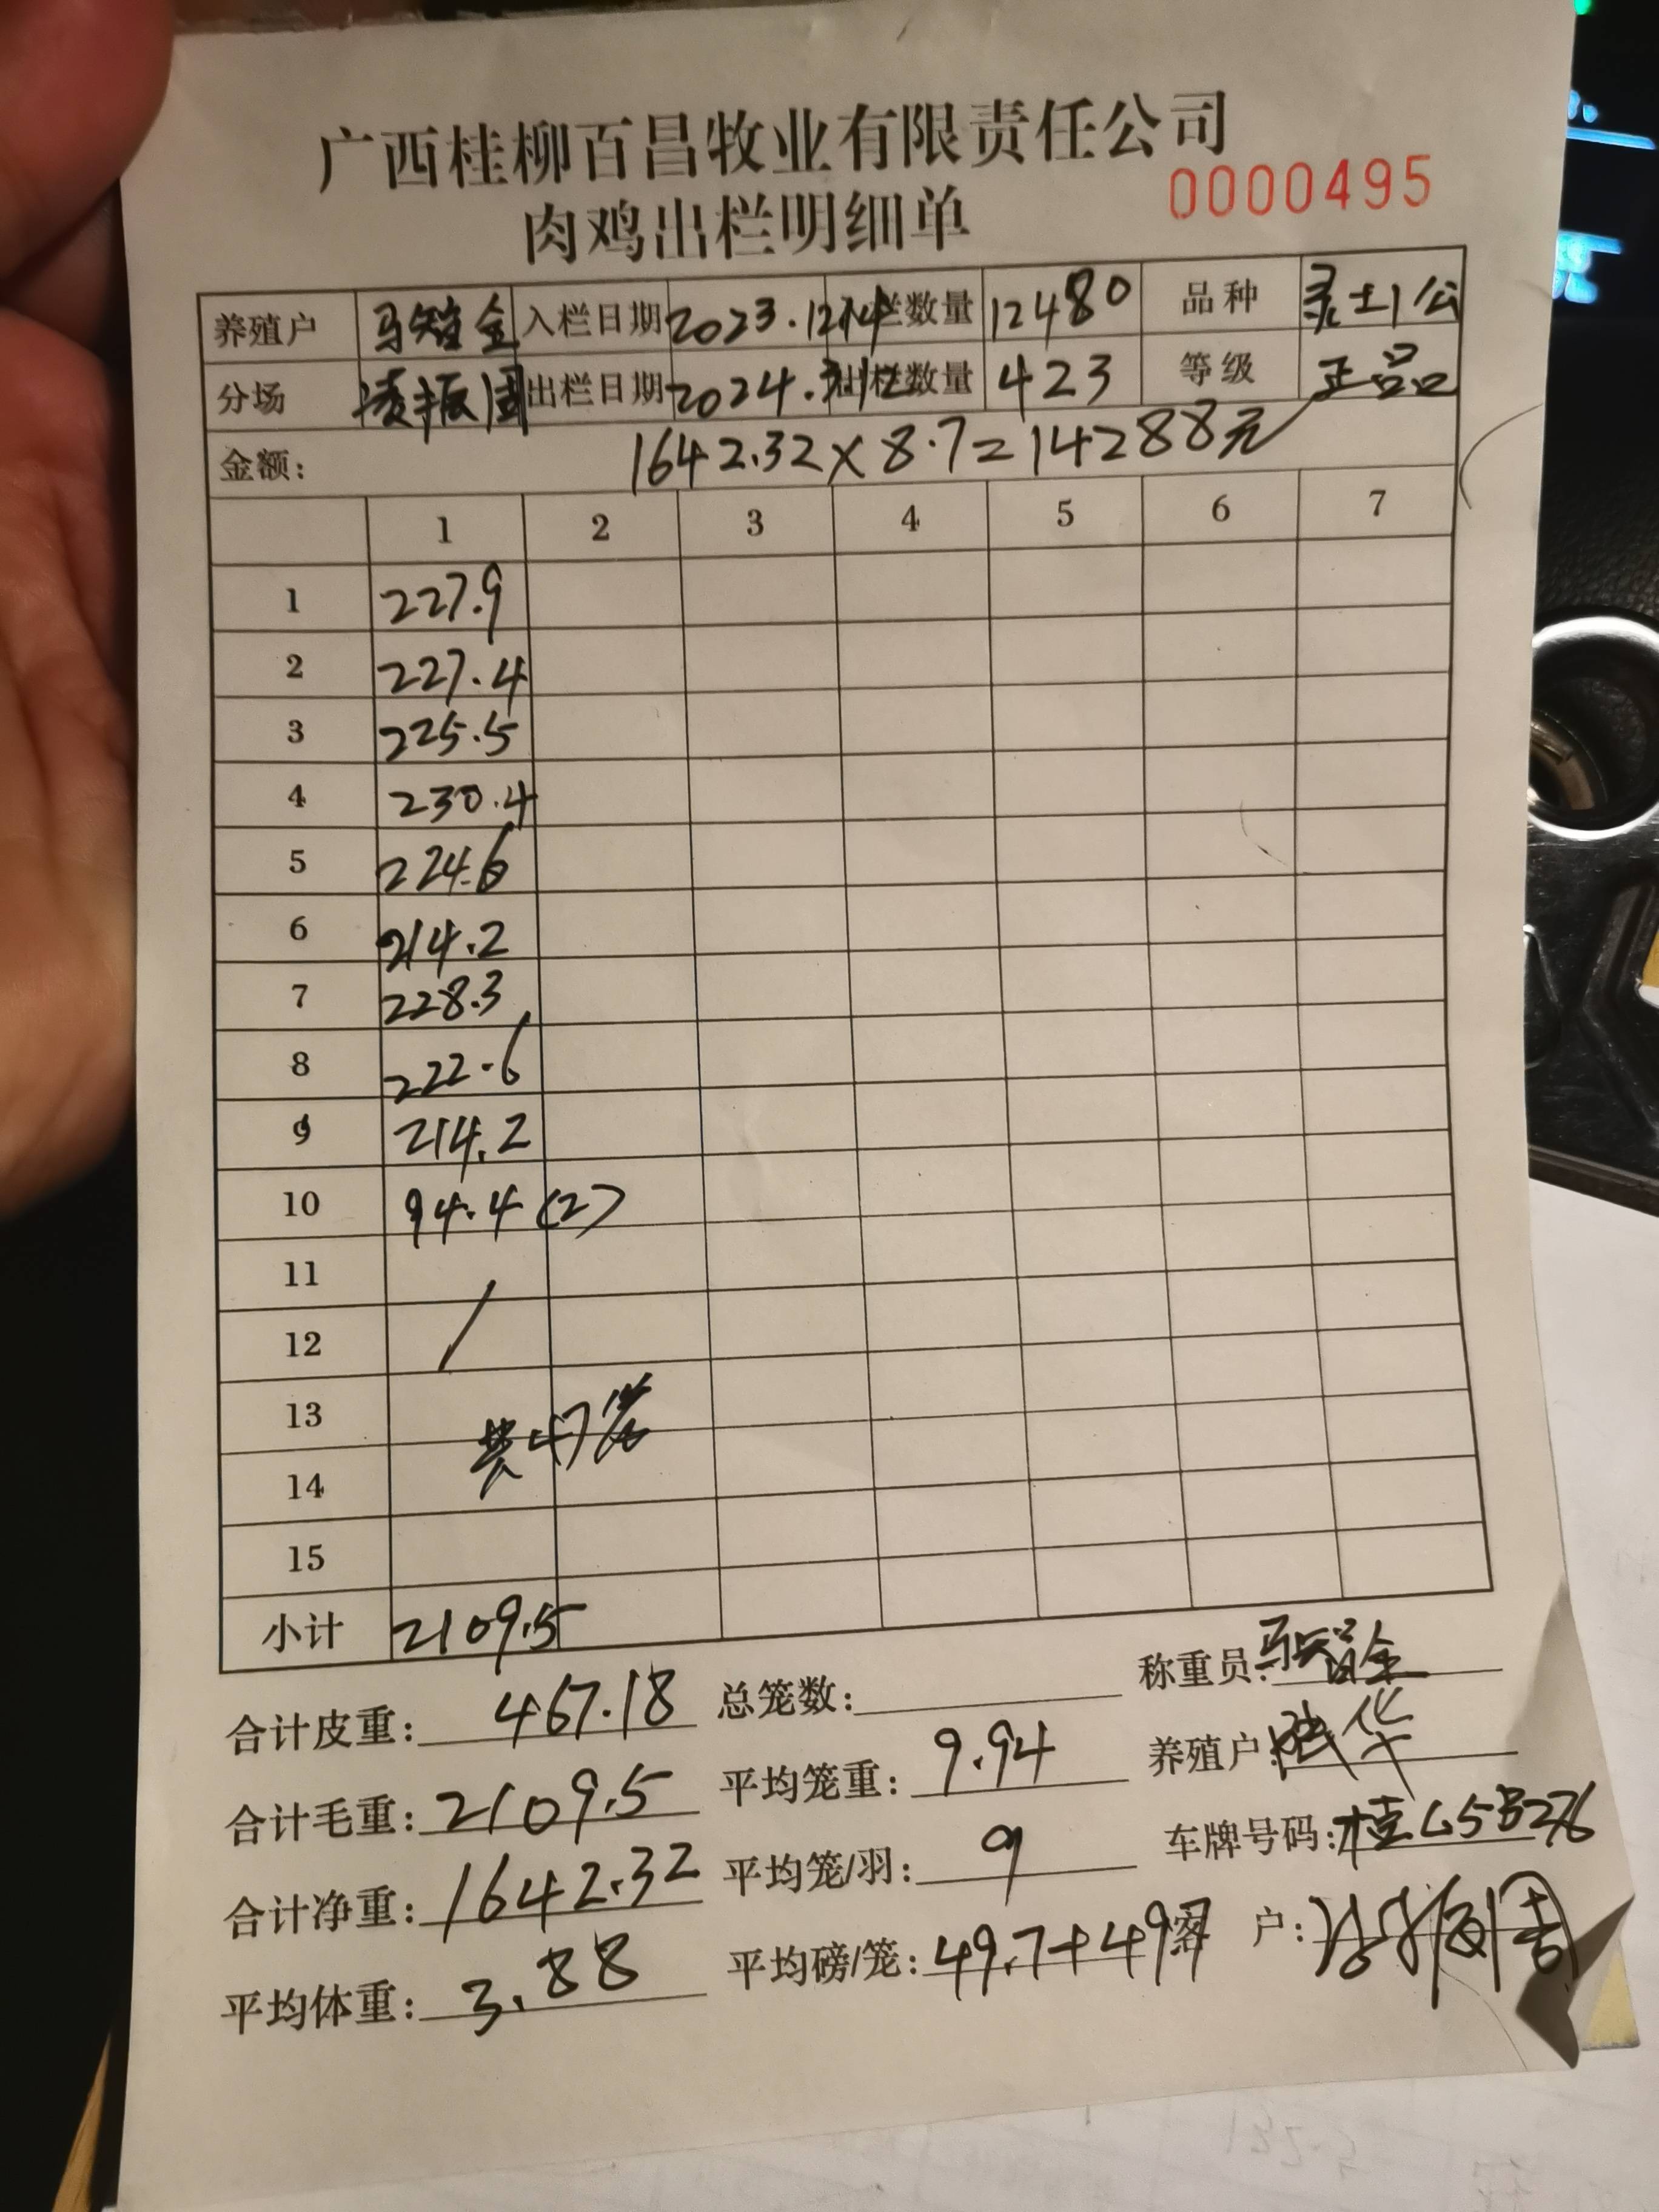 广西桂柳百昌牧业有限责任公司
肉鸡出栏明细单 0000495
养殖户 入栏日期 2023.12.14 入栏数量 12480 品种 灵土1公
分场 凌振周 出栏日期 2024. 出栏数量 423 等级 正品
金额: 1642.32×8.7=14288元
1 2 3 4 5 6 7
1 227.9
2 227.4
3 225.5
4 230.4
5 224.6
6 214.2
7 228.3
8 222.6
9 214.2
10 94.4(2)
11
12
13 共47笼
14
15
小计 2109.5
合计皮重: 467.18 总笼数: 称重员:
合计毛重: 2109.5 平均笼重: 9.94 养殖户:
合计净重: 1642.32 平均笼/羽: 9 车牌号码:
平均体重: 3.88 平均磅/笼: 客户: